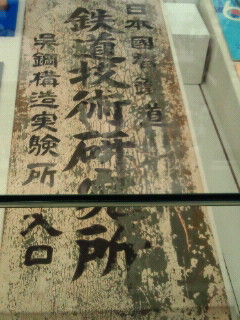 日本國有鉄道
鉄道技術研究所
呉鋼構造実験所
入口